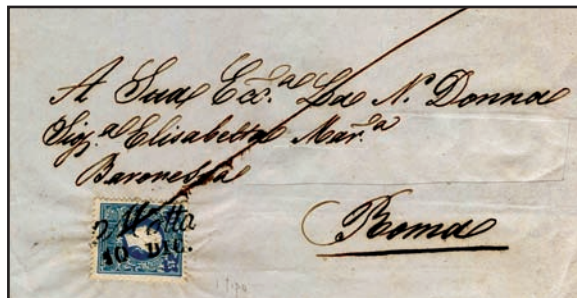 A Sua Ecc.a La N. Donna
Sig.a Elisabetta Mar.a
Baronessa
Roma
Motta
10 DIC.